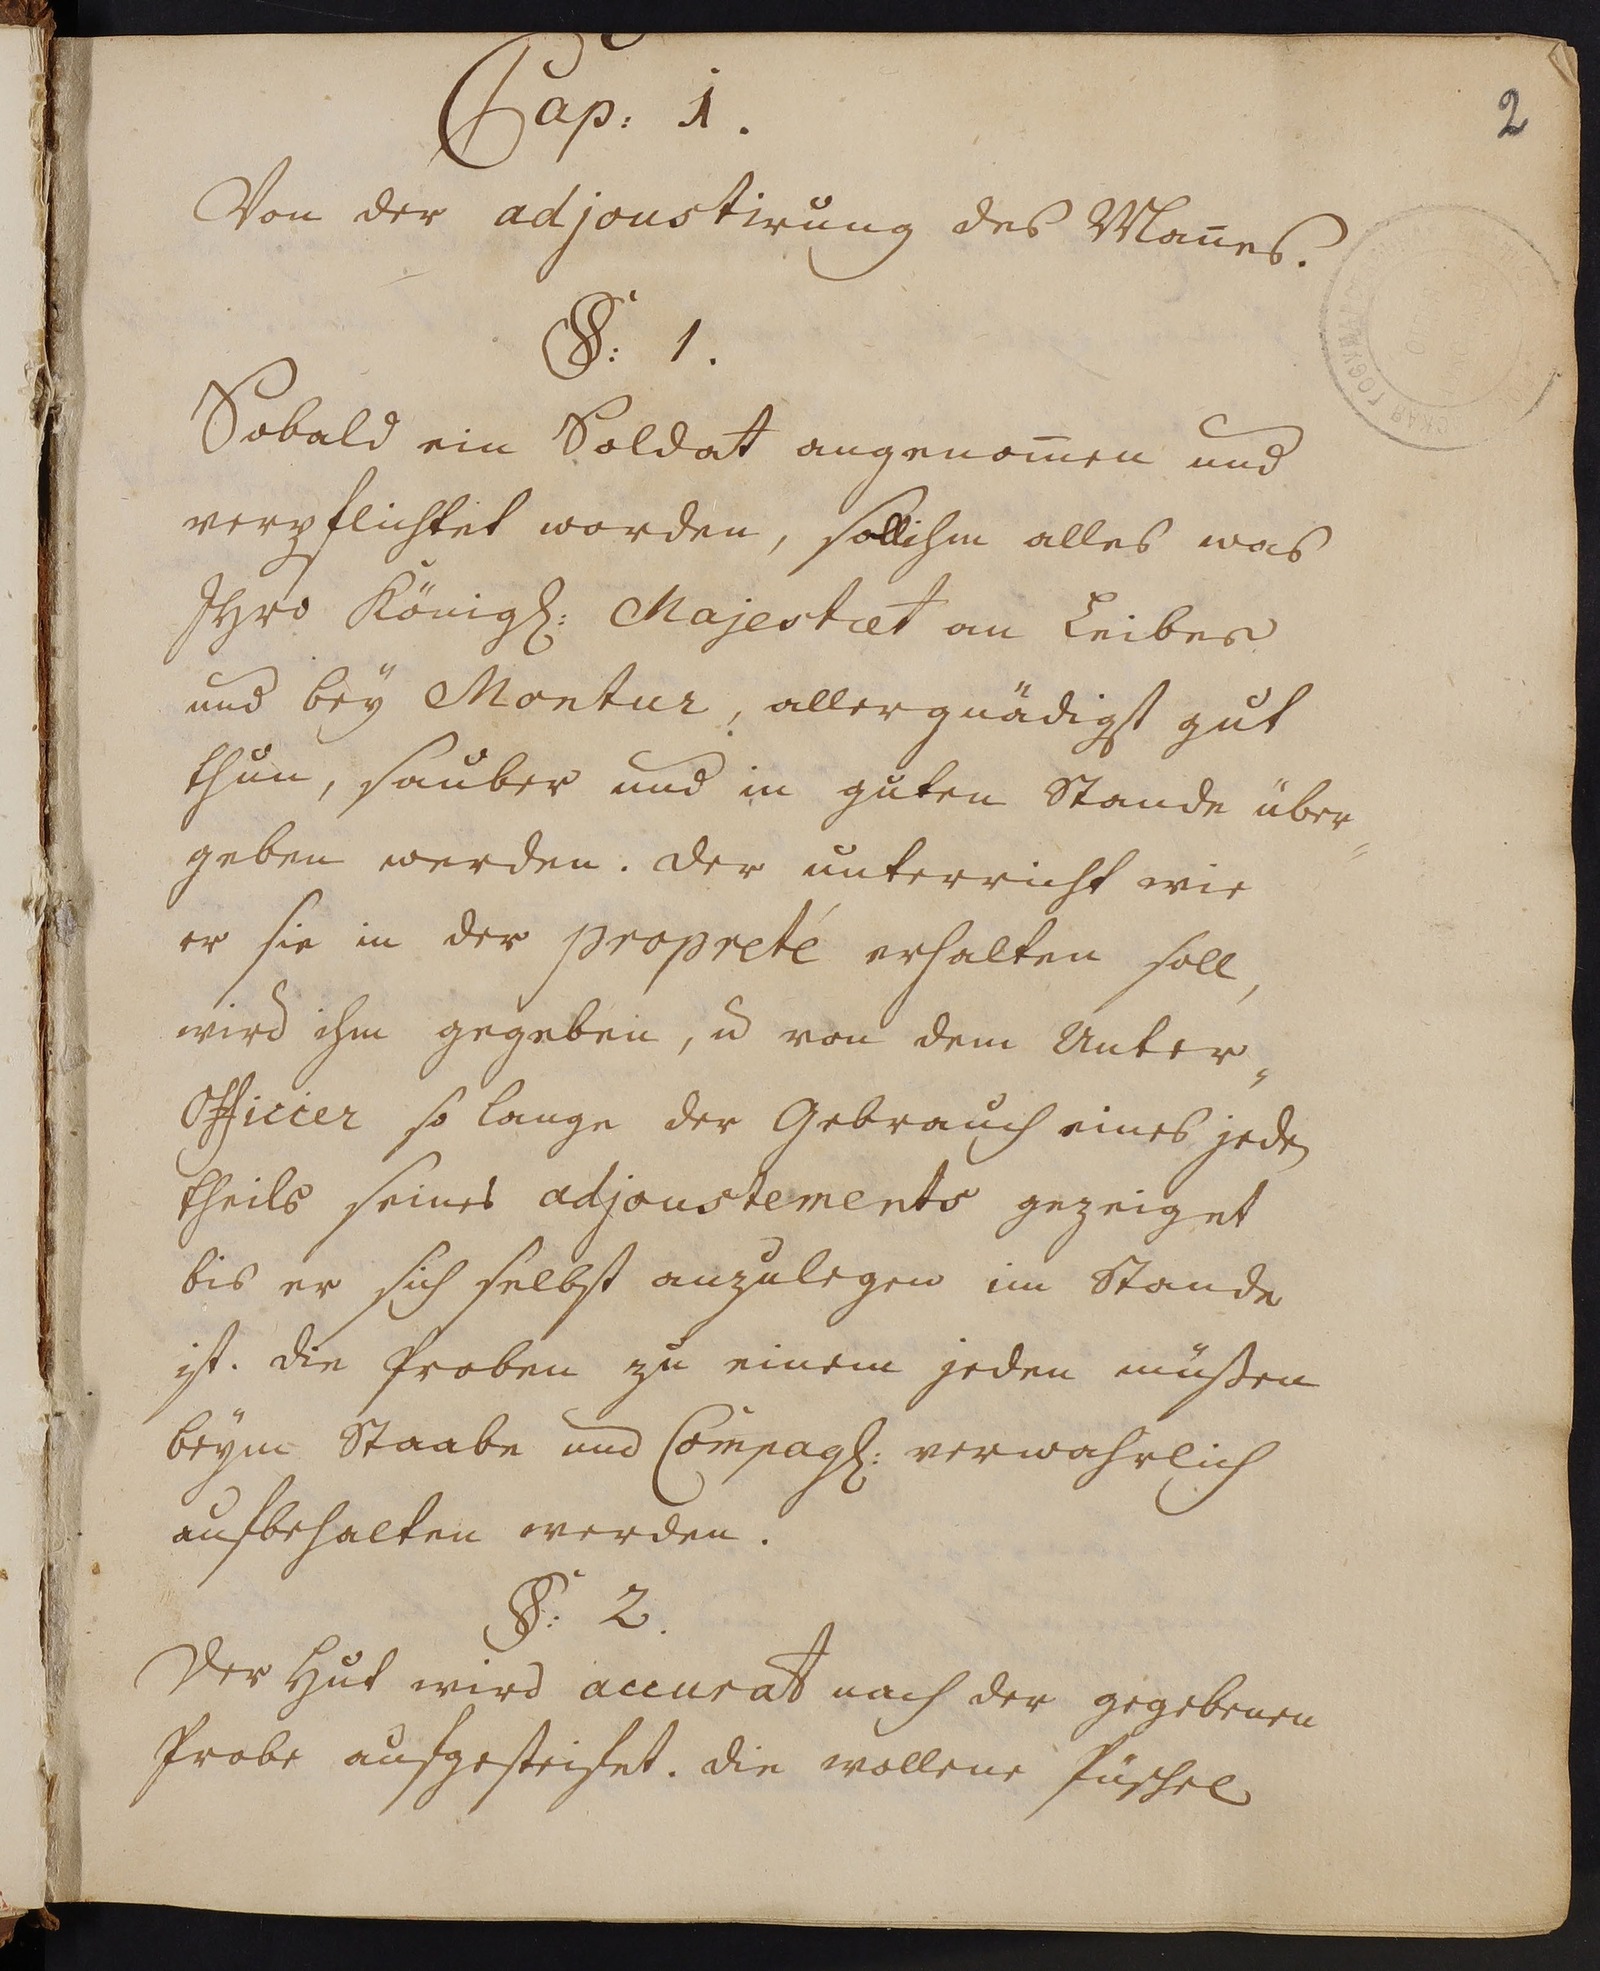 2
Cap: 1.
Von der adjoustirung des Man̄es.
§: 1.
Sobald ein Soldat angenom̄en und
verpflichtet worden, soll ihm alles was
Ihro Königl: Majestæt an Leibes
und bey Montur, allergnädigst gut
thun, sauber und in guten Stande über„
geben werden. Der unterricht wie
er sie in der propreté erhalten soll,
wird ihm gegeben, u von dem Unter„
Officier so lange der Gebrauch eines jeden
theils seines adjoustements gezeiget
bis er sich selbst anzulegen im Stande
ist. Die Proben zu einem jeden müßen
beym Staabe und Compagl: verwahrlich
aufbehalten werden.
§: 2.
Der Hut wird accurat nach der gegebenen
Probe aufgesteifet. Die wollene Püschel